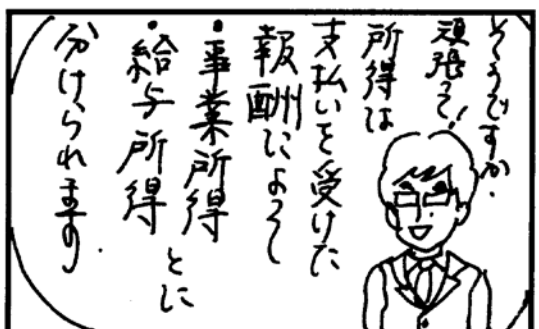 そうですか.
頑張って!!
所得は
支払いを受けた
報酬によって
・事業所得
・給与所得とに
分けられます.